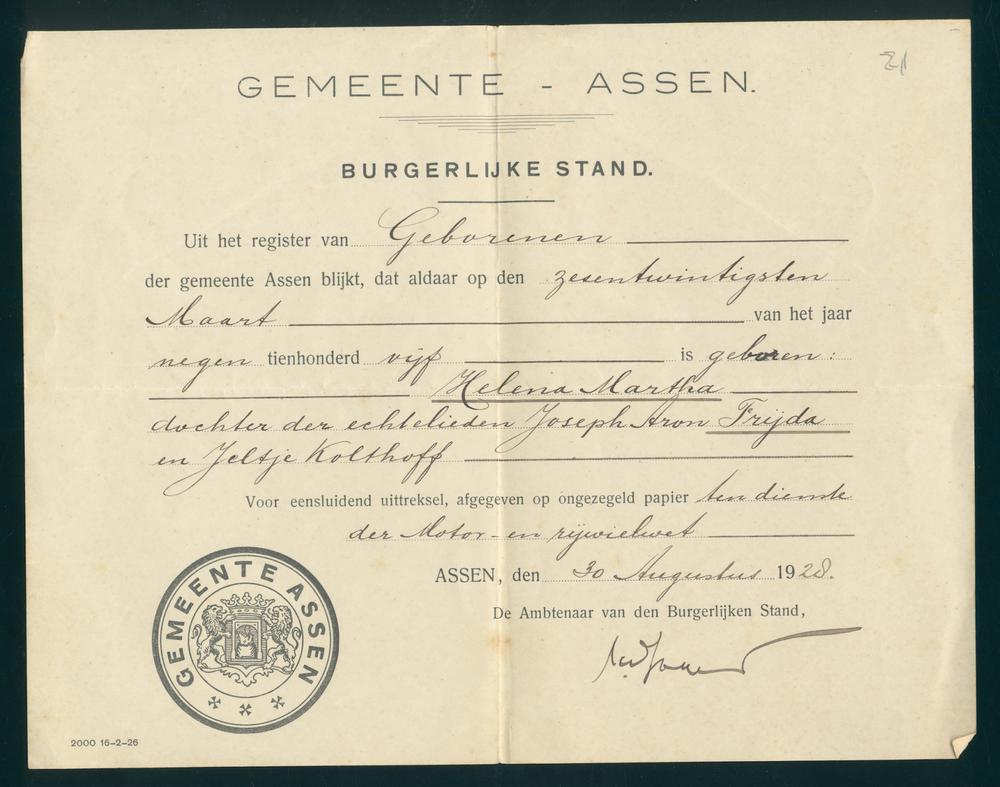 GEMEENTE - ASSEN.
BURGERLIJKE STAND.
Uit het register van Geborenen
der gemeente Assen blijkt, dat aldaar op den zesentwintigsten
Maart van het jaar
negen tienhonderd vijf is geboren:
Helena Martha
dochter der echtelieden Joseph Aron Frijda
en Jeltje Kolthoff
Voor eensluidend uittreksel, afgegeven op ongezegeld papier ten dienste
der Motor- en rijwielwet
ASSEN, den 30 Augustus 1928.
De Ambtenaar van den Burgerlijken Stand,
GEMEENTE ASSEN
2000 16-2-26